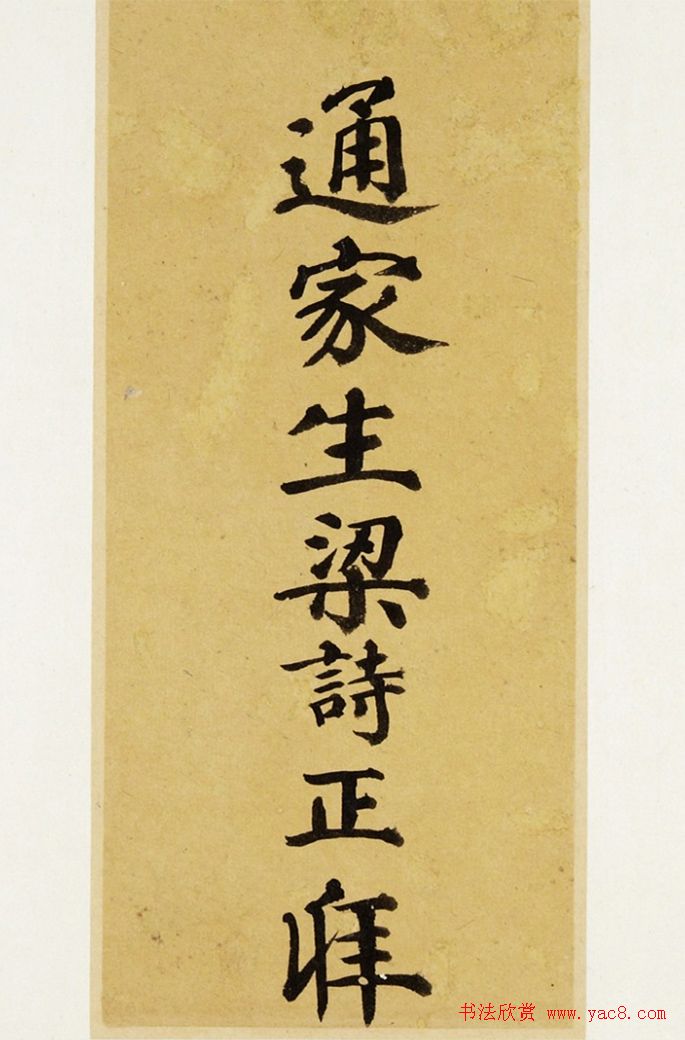 通家生梁詩正拜
书法欣赏 www.yac8.com